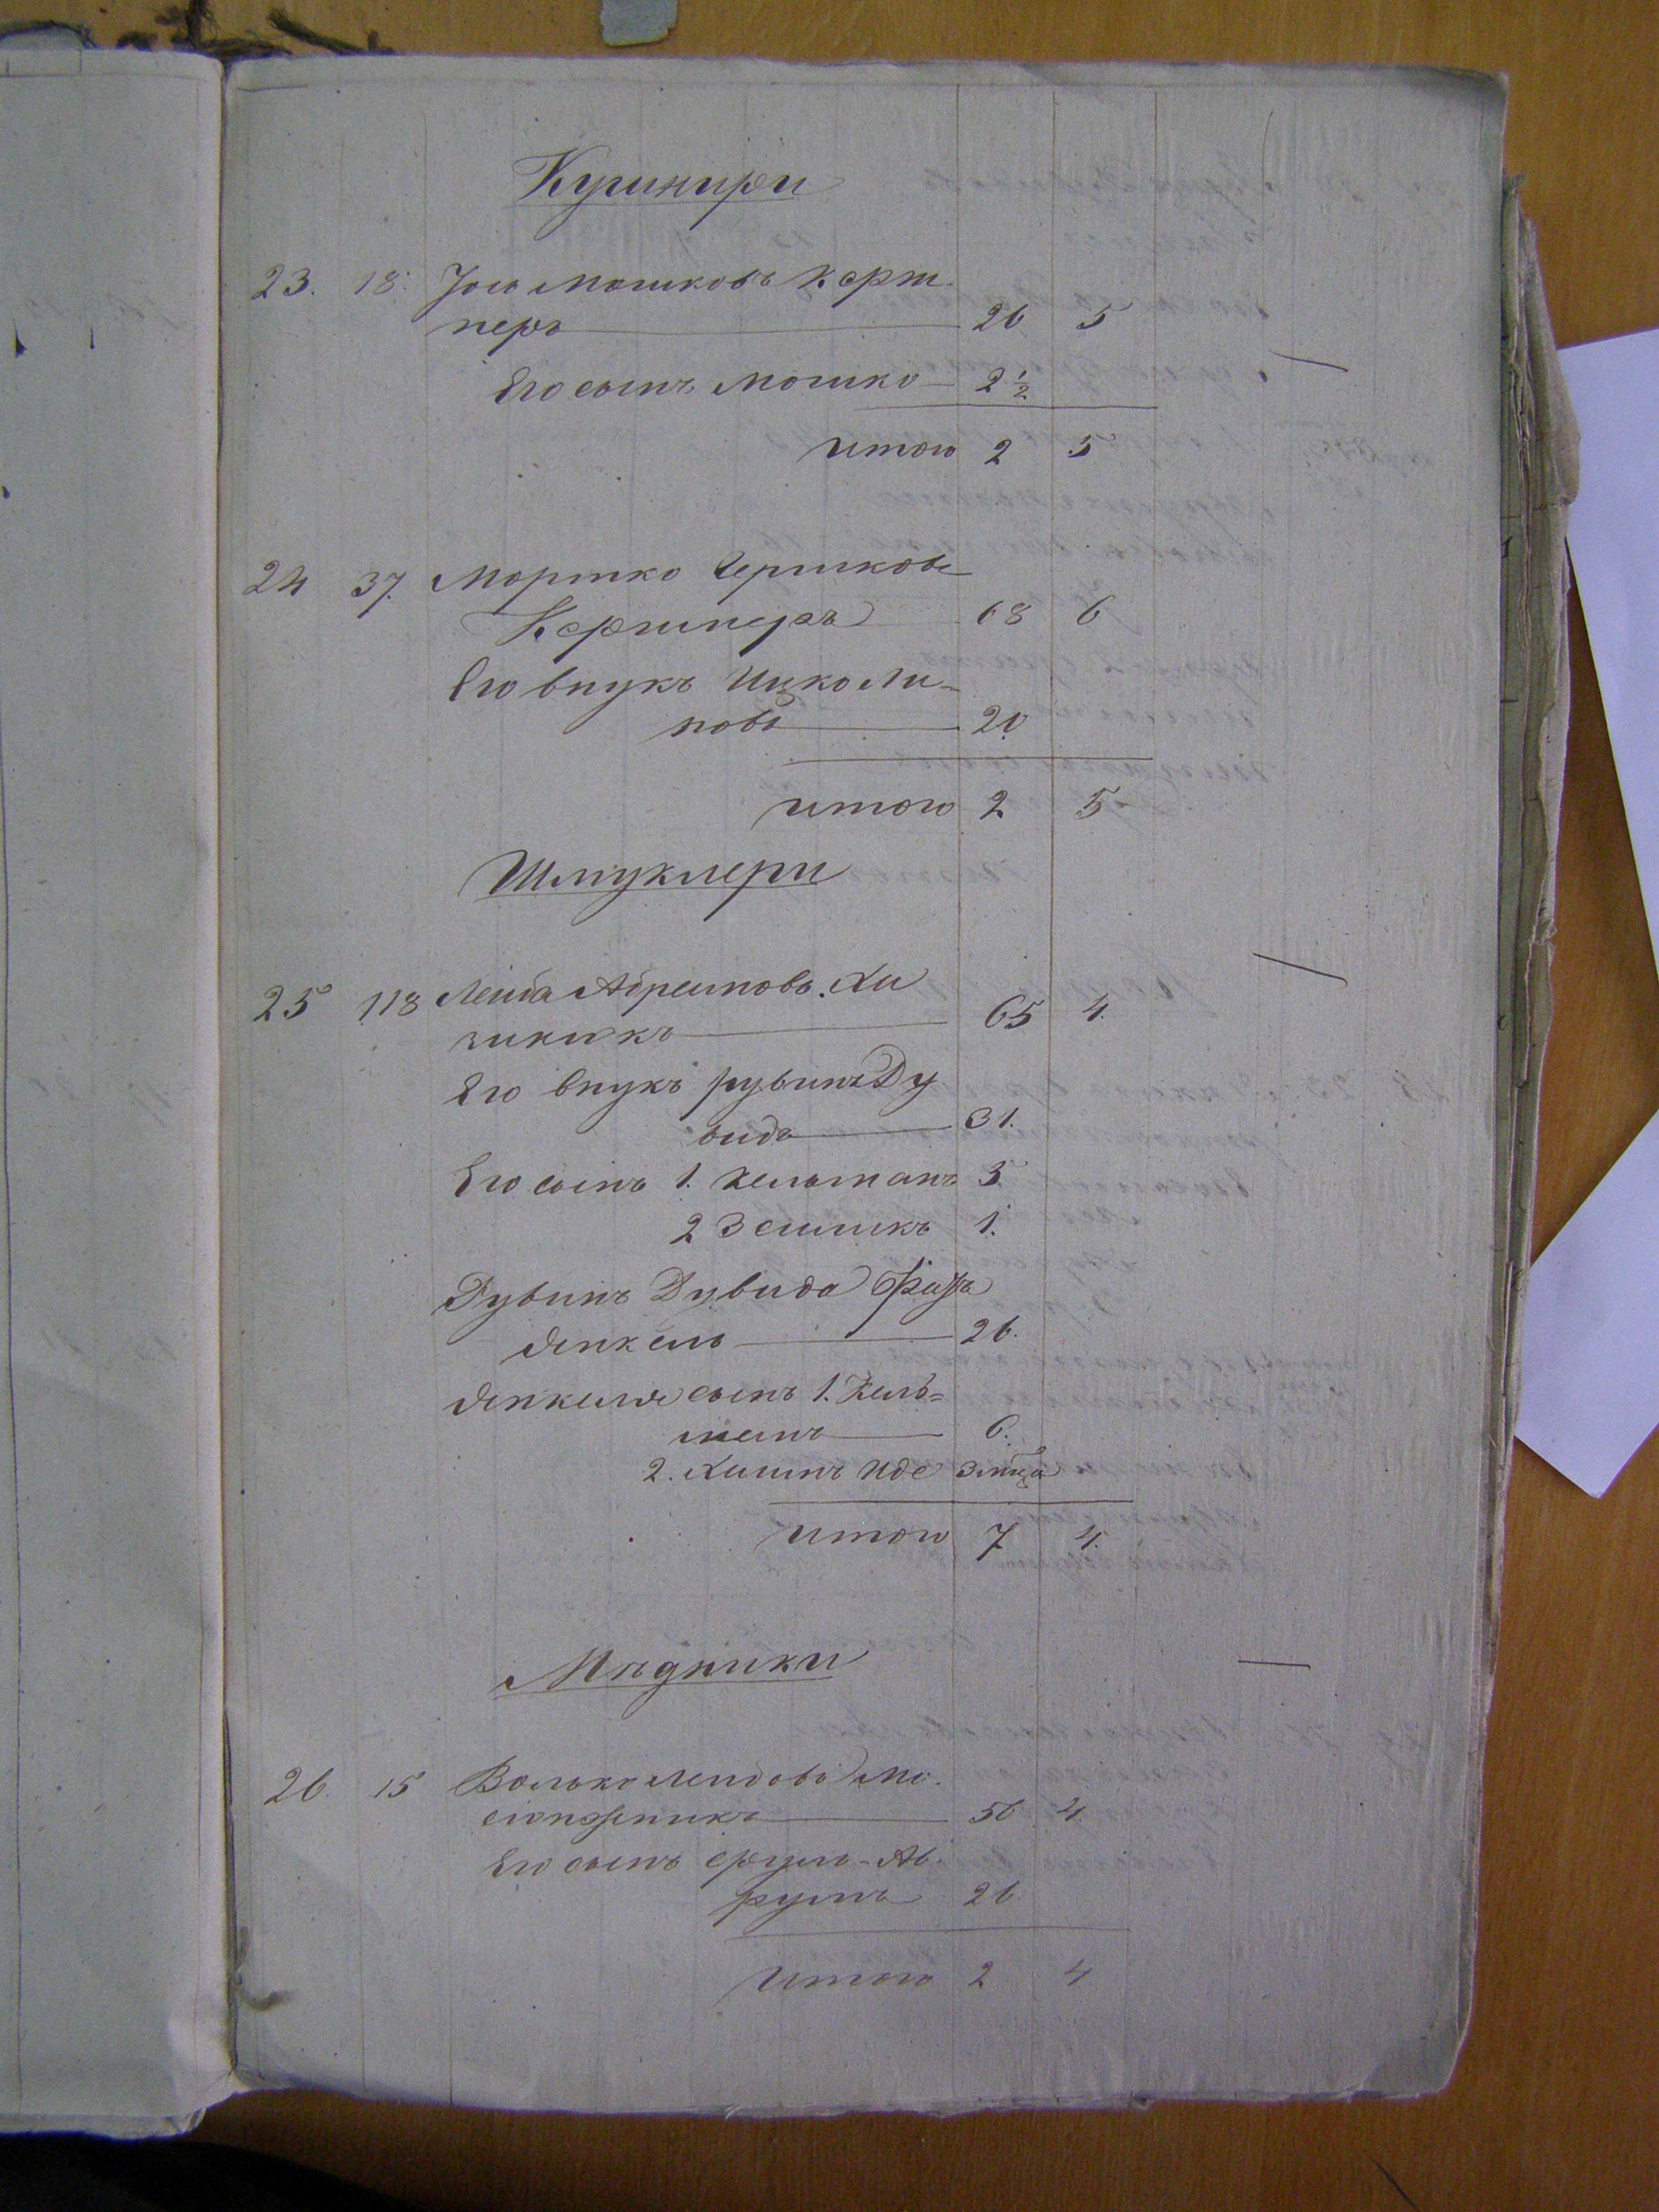 Кушнири
23. 18. Іось Мошковъ Керш
неръ 26 5
Его сынъ Мошко 2 1/2
итого 2 5
24 37. Мортко Гершковъ
Кершнеръ 68 6
Его внукъ Ицко Ли-
повъ 20
итого 2 5
Шмуклери
25 118 Лейба Абрамовъ Хи
65 4.
Его внукъ рувинъ Ду
видъ 31.
Его сынъ 1. Кельманъ 5
2 Зейликъ 1.
Рувинъ Дувида братъ
Янкель 26.
Янкеля сынъ 1. Кель-
манъ 6.
2. Хаимъ Иде 3 мѣца
итого 7 4.
Мѣдники
26. 15 Волько Лейбовъ Мо.
56 4.
Его сынъ Сруль-Ав.
румъ 26
Итого 2 4